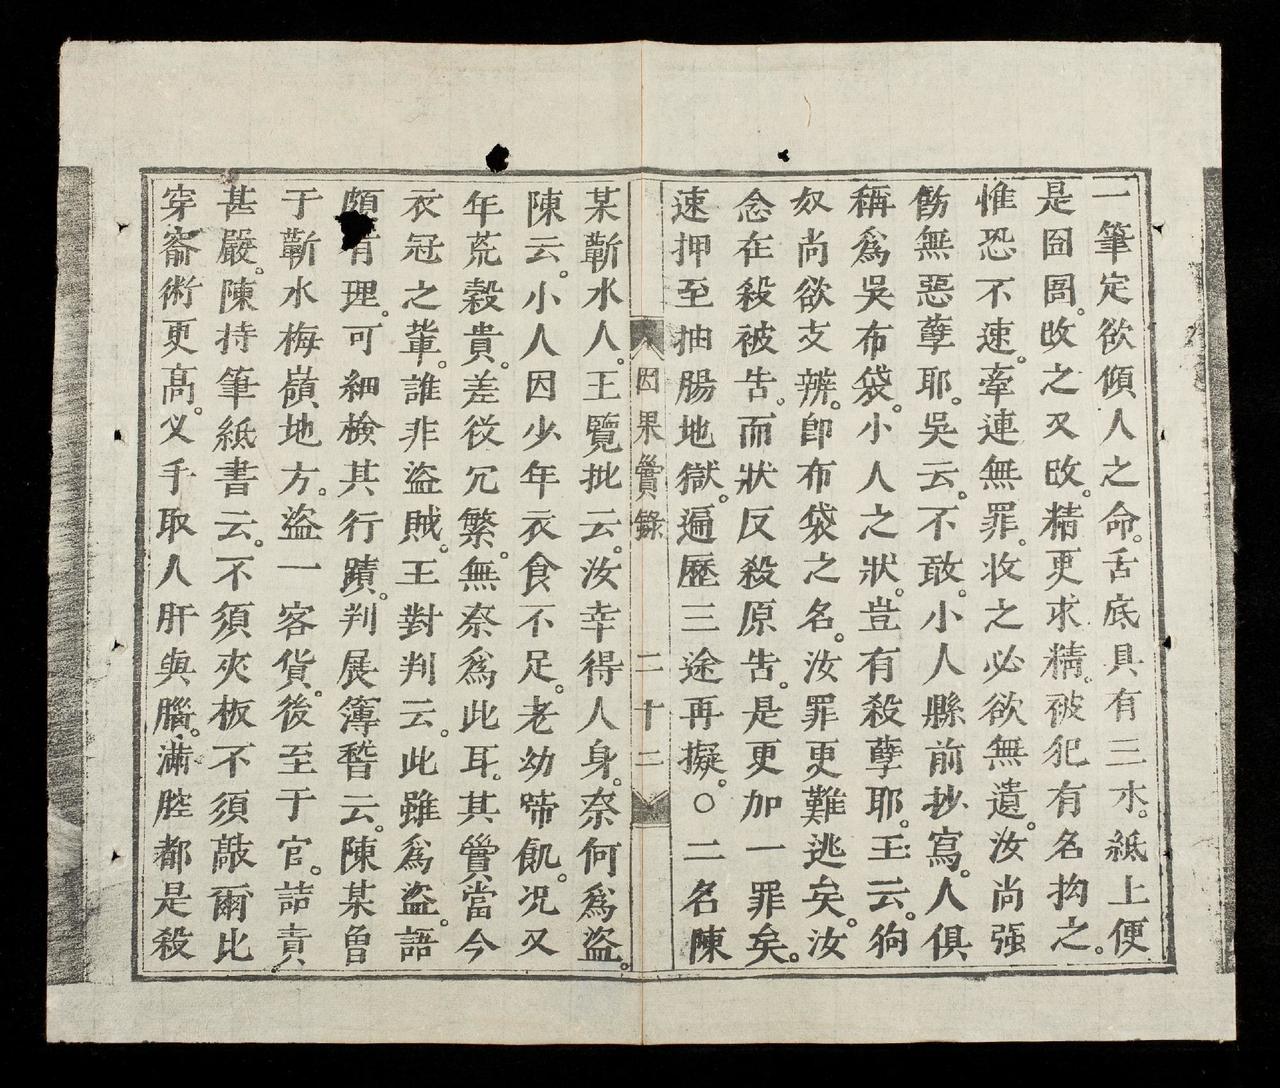 一筆定欲傾人之命。舌底具有三水。紙上便
是囹圄。改之又改。精更求精。被犯有名拘之。
惟恐不速。牽連無罪。收之必欲無遺。汝尚强
飭無惡孽耶。吳云。不敢。小人縣前抄寫。人俱
稱爲吳布袋。小人之狀。豈有殺孽耶。王云。狗
奴尚欲支辨。卽布袋之名。汝罪更難逃矣。汝
念在殺被告。而狀反殺原告。是更加一罪矣。
速押至抽腸地獄。遍歷三途再擬。○二名陳
因果實錄 二十三
某蘄水人。王覽批云。汝幸得人身。奈何爲盜。
陳云。小人因少年衣食不足。老幼啼飢。况又
年荒穀貴。差役冗繁。無奈爲此耳。其實當今
衣冠之輩。誰非盜賊。王對判云。此雖爲盜。語
頗有理。可細檢其行蹟。判展簿稽云。陳某曾
于蘄水梅嶺地方。盜一客貨。後至于官。詰責
甚嚴。陳持筆紙書云。不須夾板不須敲爾比
穿窬術更高。义手取人肝與腦。滿腔都是殺